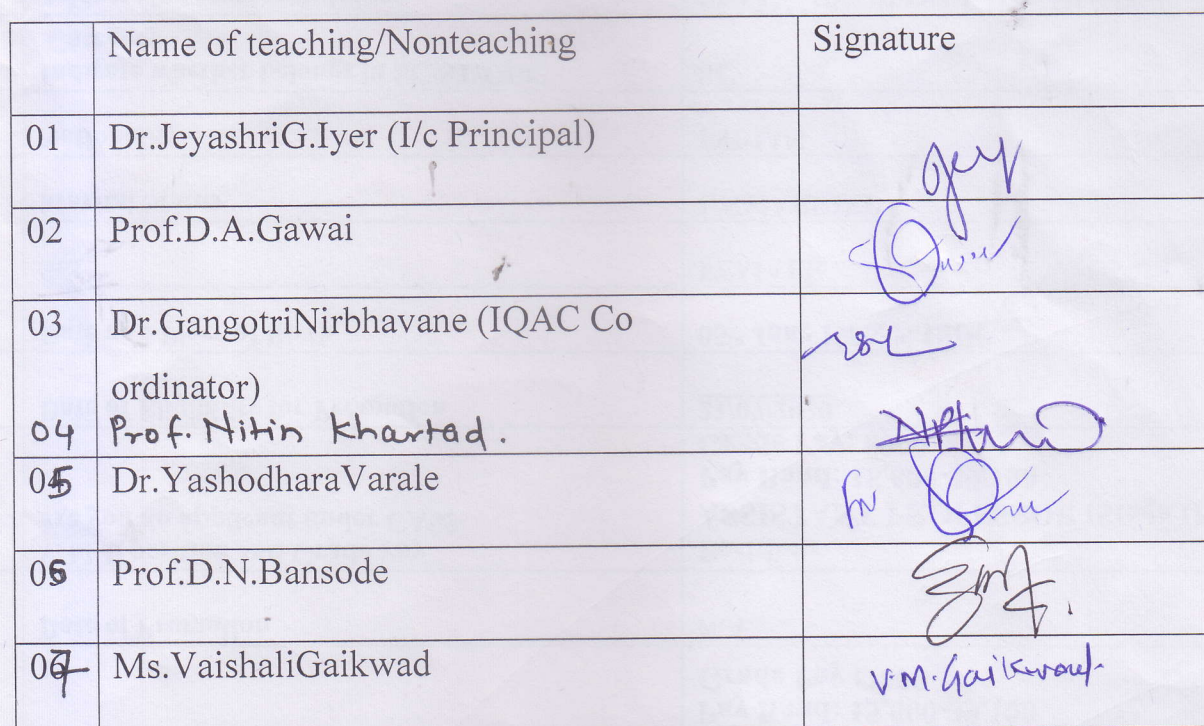 Name of teaching/Nonteaching Signature
01 Dr.JeyashriG.Iyer (I/c Principal)
02 Prof.D.A.Gawai
03 Dr.GangotriNirbhavane (IQAC Co
ordinator)
04 Prof. Nitin Khartad.
05 Dr.YashodharaVarale
06 Prof.D.N.Bansode
07 Ms.VaishaliGaikwad V.M.Gaikwad